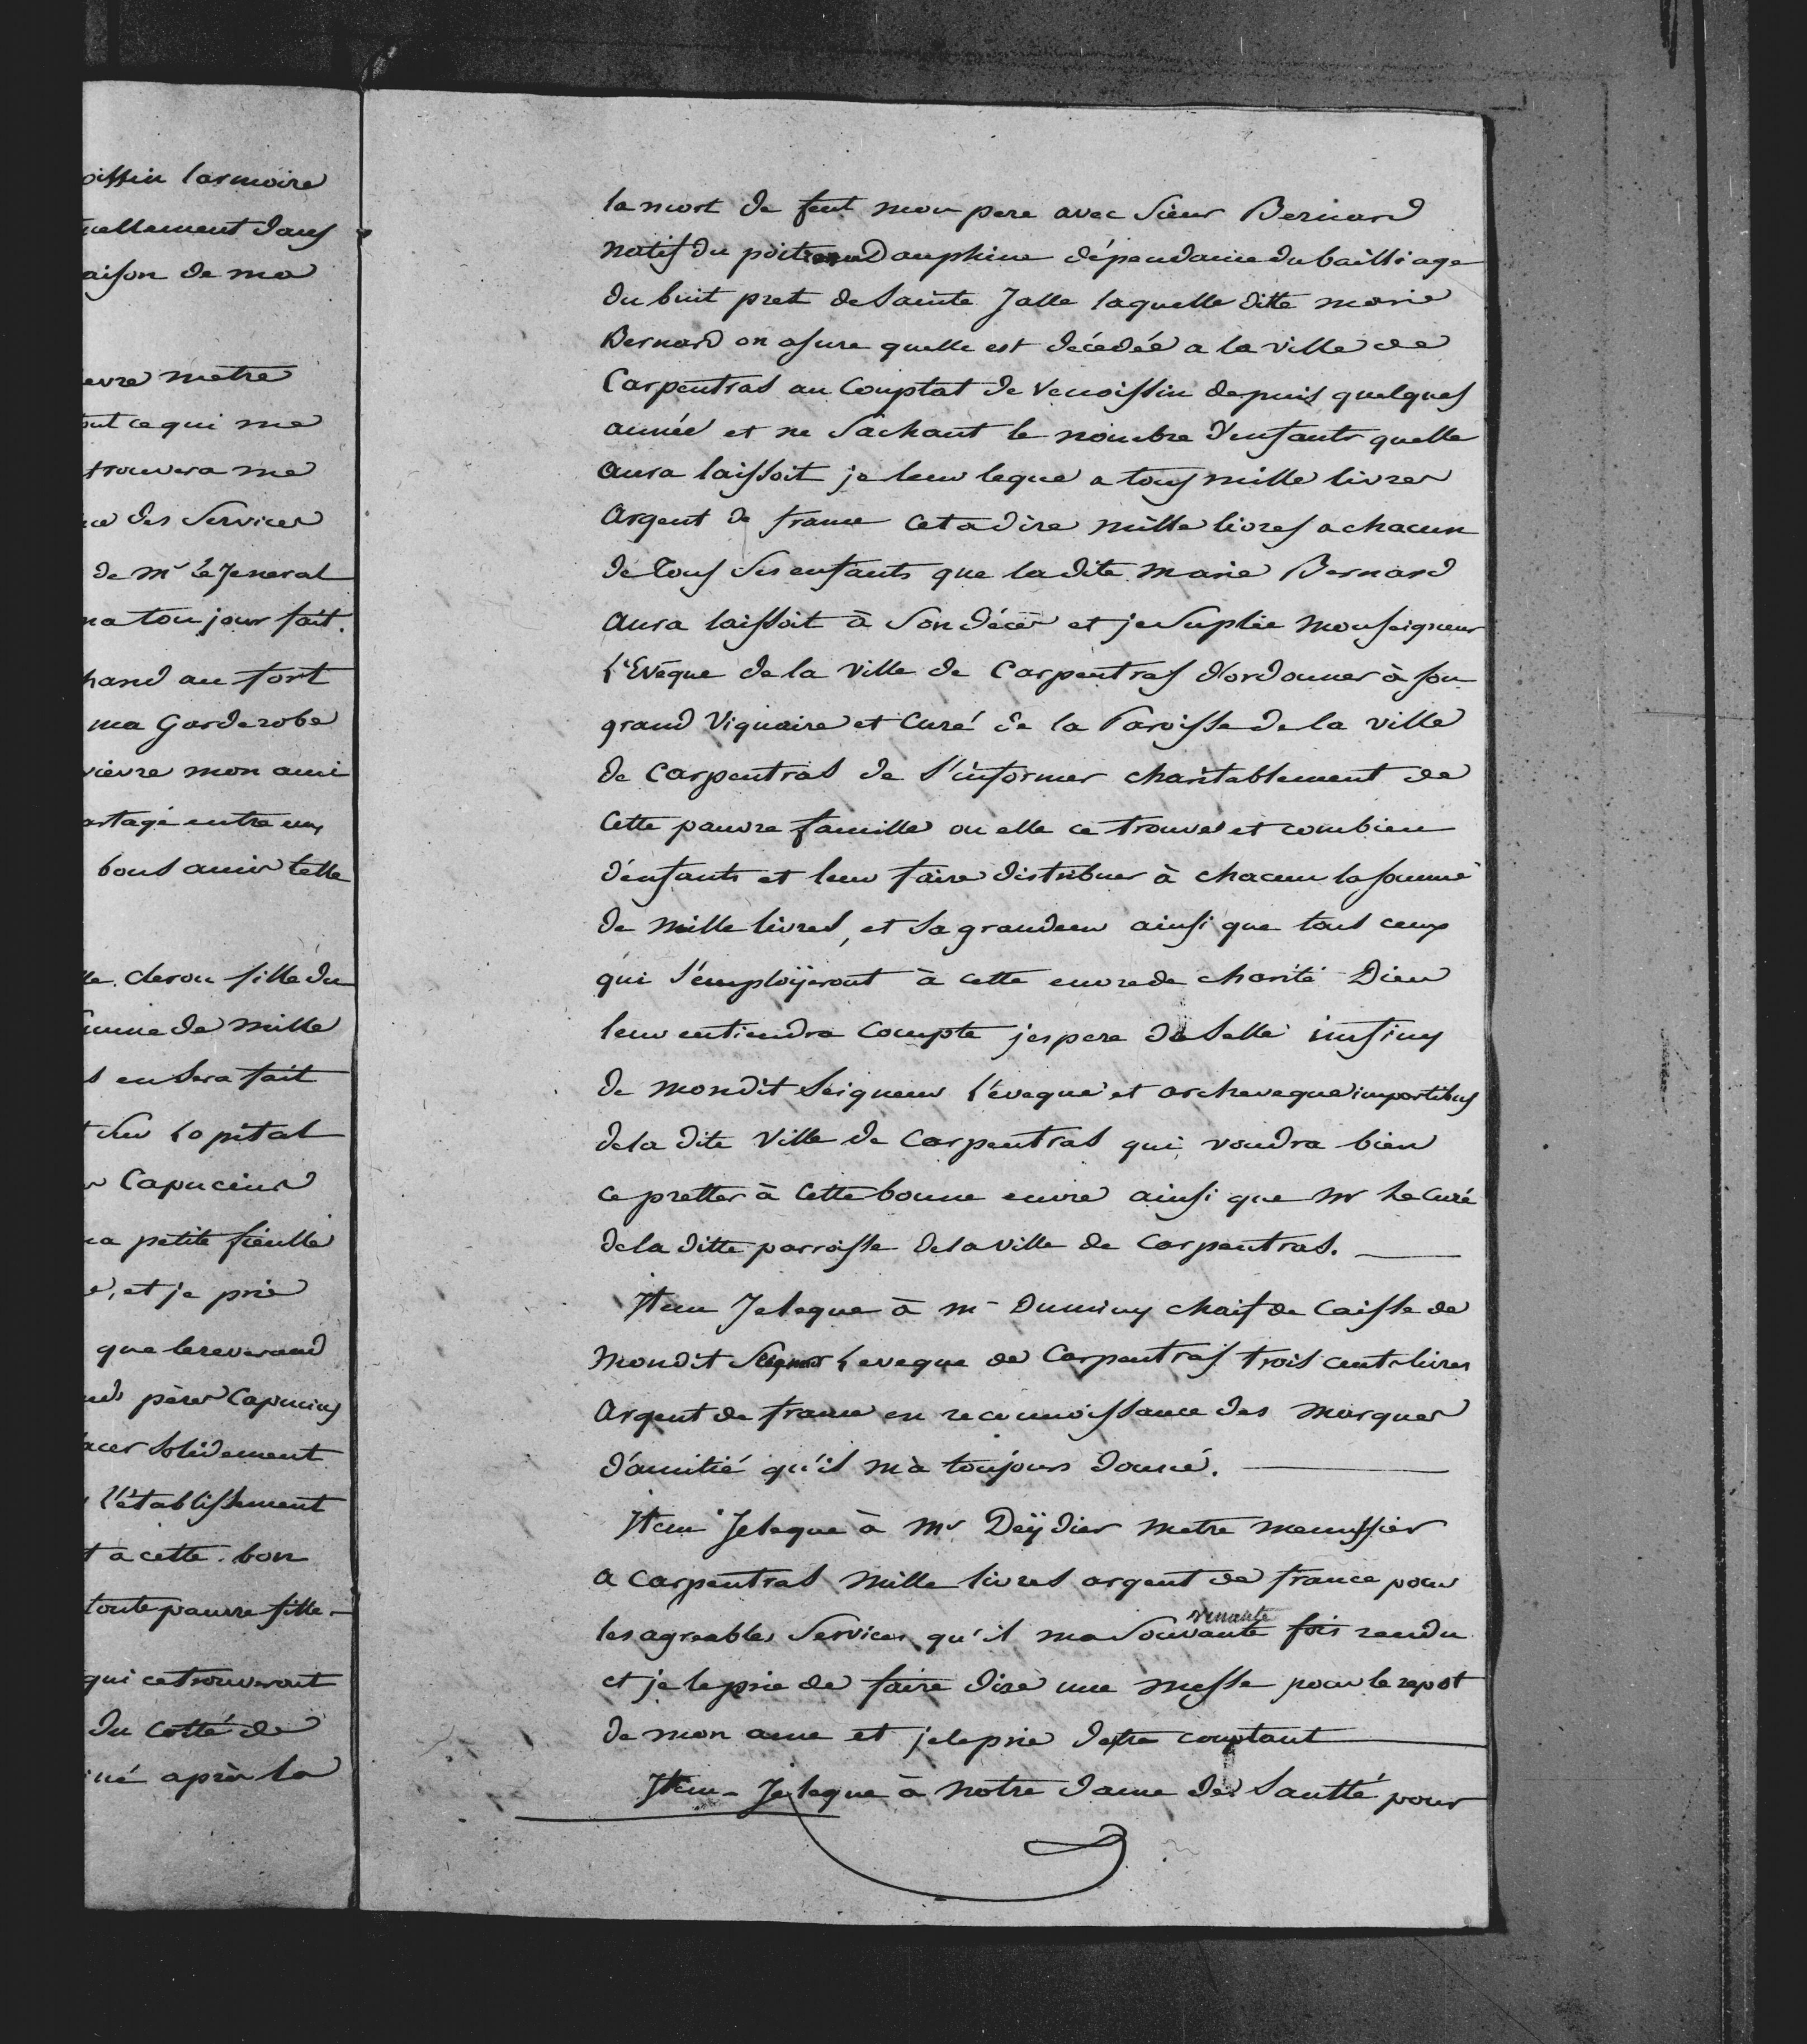 oissin larmoire
uellement dans
aison de ma
euvre metre
out ce qui me
trouvera me
ce des Services
de mr le Jeneral
ma toujour fait.
hand au fort
ma Garderobe
vievre mon ami
artagé entre eux
bons amis telle
le clerou fille du
omme de mille
s en sera fait
Sur Lopital
Capucins
ma petite fieulle
e, et je prie
que lereverand
nds pères Capucins
acer solidement
l'établissement
t a cette bon
toute pauvre fille
qui ce trouveront
du cotté de
né après la
la mort de feut mon pere avec Sieur Bernard
natif du poit en Dauphine dépendance du bailliage
du buit pret de Sainte Jalle laquelle ditte marie
Bernard on asure quelle est décédée a la ville de
Carpentras au Comptat de Venoissin depuis quelques
année et ne Sachant le nombre d'enfants quelle
aura laissoit je leur legue a tous mille livres
argent de france cetadire mille livres a chacun
de Tous Ses enfants que ladite marie Bernard
aura laissoit à Son décès et je Suplie monseigneur
L'Evêque de la ville de Carpentras d'ordonner à son
grand Viquaire et Curé de la Paroisse de la ville
de Carpentras de S'informer charitablement de
Cette pauvre famille ou elle ce trouve et combien
d'enfants et leur faire distribuer à chacun la somme
de mille livres, et Sa grandeur ainsi que tous ceux
qui S'employeront à cette euvre de charité Dieu
leur entiendra Compte jespere de Selle
de mondit Seigneur L'éveque et archeveque inpartibus
dela dite Ville de Carpentras qui voudra bien
ce pretter à Cette bonne euvre ainsi que mr Le Curé
dela ditte parroisse dela ville de Carpentras.
Item Je legue à mr Duminy chaif de Caisse de
mondit Seigneur Leveque de Carpentras trois cent livres
argent de france en reconnoissance des marques
d'amitié qu'il m'à toujours donné.
Item Je legue à mr Deÿdier metre menussier
a Carpentras mille livres argent de france pour
les agreables Services qu'il ma Souvante fois rendu
et je le prie de faire dire une messe pour le repot
de mon ame et je le prie detre comptant
Item Je legue à notre dame de Santté pour